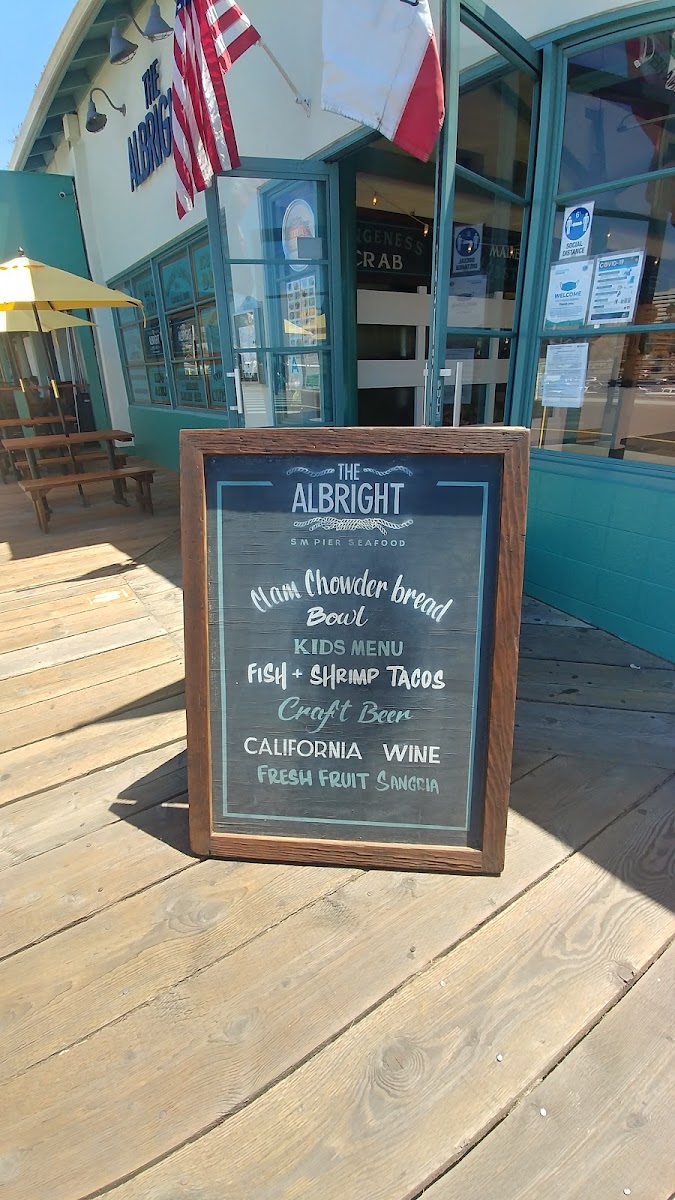 THE
ALBRIGHT
CRAB
SOCIAL
DISTANCE
WELCOME
COVID-19
THE
ALBRIGHT
SM PIER SEAFOOD
Clam Chowder bread
Bowl
KIDS MENU
FISH + SHRIMP TACOS
Craft Beer
CALIFORNIA WINE
FRESH FRUIT SANGRIA